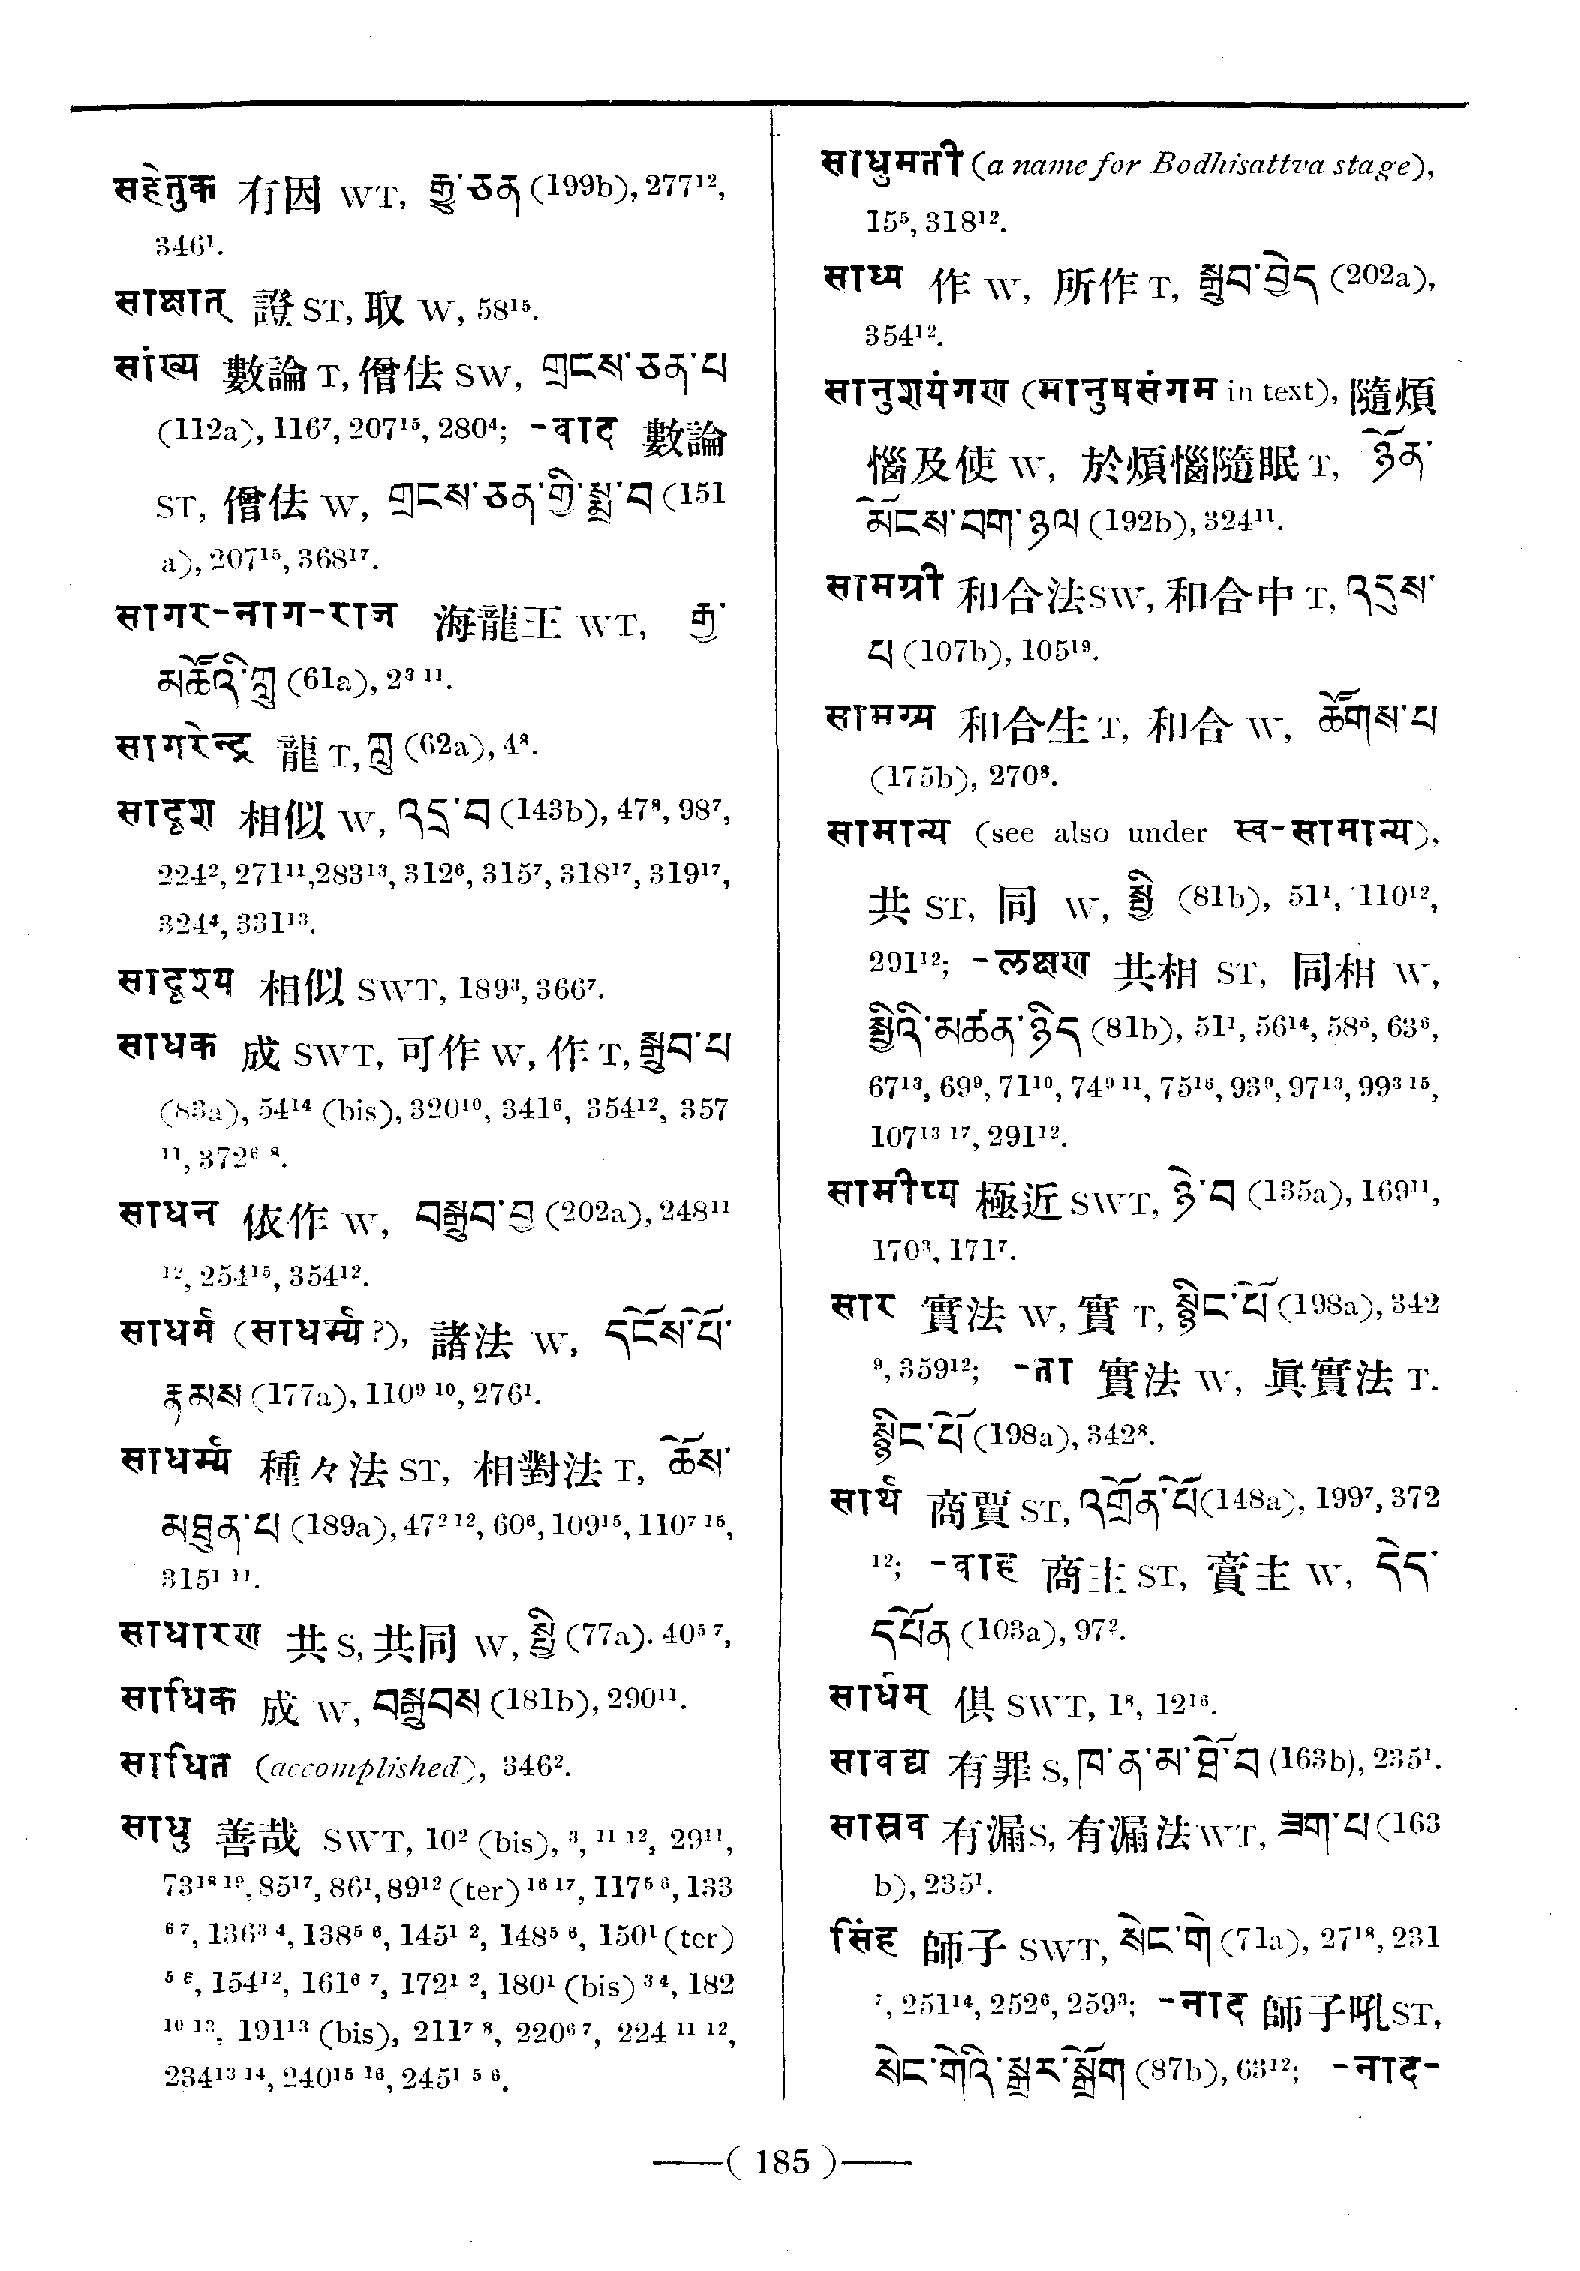 सहेतुक 有因 WT, རྒྱུ་ཅན (199b), 277¹²,
346¹.
साक्षात् 證 ST, 取 W, 58¹⁵.
सांख्य 數論 T, 僧佉 SW, གྲངས་ཅན་པ
(112a), 116⁷, 207¹⁵, 280⁴; -वाद 數論
ST, 僧佉 W, གྲངས་ཅན་གྱི་སྨྲ་བ (151
a), 207¹⁵, 368¹⁷.
सागर-नाग-राज 海龍王 WT, རྒྱ་
མཚོའི་ཀླུ (61a), 2³ ¹¹.
सागरेन्द्र 龍 T, ཀླུ (62a), 4⁸.
सादृश 相似 W, འདྲ་བ (143b), 47⁸, 98⁷,
224², 271¹¹, 283¹³, 312⁶, 315⁷, 318¹⁷, 319¹⁷,
324⁴, 331¹³.
सादृश्य 相似 SWT, 189³, 366⁷.
साधक 成 SWT, 可作 W, 作 T, སྒྲུབ་པ
(83a), 54¹⁴ (bis), 320¹⁰, 341⁶, 354¹², 357
¹¹, 372⁶ ⁸.
साधन 依作 W, བསྒྲུབ་བྱ (202a), 248¹¹
¹², 254¹⁵, 354¹².
साधर्म (साधर्म्य?), 諸法 W, དངོས་པོ་
རྣམས (177a), 110⁹ ¹⁰, 276¹.
साधर्म्य 種々法 ST, 相對法 T, ཆོས་
མཐུན་པ (189a), 47² ¹², 60⁶, 109¹⁵, 110⁷ ¹⁵,
315¹ ¹¹.
साधारण 共 S, 共同 W, སྤྱི (77a). 40⁵ ⁷,
साधिक 成 W, བསྒྲུབས (181b), 290¹¹.
साधित (accomplished), 346².
साधु 善哉 SWT, 10² (bis), ³, ¹¹ ¹², 29¹¹,
73¹⁸ ¹⁹, 85¹⁷, 86¹, 89¹² (ter) ¹⁶ ¹⁷, 117⁵ ⁶, 133
⁶ ⁷, 136³ ⁴, 138⁵ ⁶, 145¹ ², 148⁵ ⁶, 150¹ (ter)
⁵ ⁶, 154¹², 161⁶ ⁷, 172¹ ², 180¹ (bis) ³ ⁴, 182
¹⁰ ¹³, 191¹³ (bis), 211⁷ ⁸, 220⁶ ⁷, 224 ¹¹ ¹²,
234¹³ ¹⁴, 240¹⁵ ¹⁶, 245¹ ⁵ ⁶.
साधुमती (a name for Bodhisattva stage),
15⁵, 318¹².
साध्य 作 W, 所作 T, སྒྲུབ་བྱེད (202a),
354¹².
सानुशयंगण (मानुषसंगम in text), 隨煩
惱及使 W, 於煩惱隨眠 T, ཉོན་
མོངས་བག་ཉལ (192b), 324¹¹.
सामग्री 和合法 SW, 和合中 T, འདུས་
པ (107b), 105¹⁹.
सामग्र्य 和合生 T, 和合 W, ཚོགས་པ
(175b), 270⁸.
सामान्य (see also under स्व-सामान्य),
共 ST, 同 W, སྤྱི (81b), 51¹, 110¹²,
291¹²; -लक्षण 共相 ST, 同相 W,
སྤྱིའི་མཚན་ཉིད (81b), 51¹, 56¹⁴, 58⁵, 63⁶,
67¹³, 69⁹, 71¹⁰, 74⁹ ¹¹, 75¹⁶, 93⁹, 97¹³, 99³ ¹⁵,
107¹³ ¹⁷, 291¹².
सामीप्य 極近 SWT, ཉེ་བ (135a), 169¹¹,
170³, 171⁷.
सार 實法 W, 實 T, སྙིང་པོ (198a), 342
⁹, 359¹²; -ता 實法 W, 眞實法 T.
སྙིང་པོ (198a), 342⁸.
सार्थ 商賈 ST, འགྲོན་པོ (148a), 199⁷, 372
¹²; -वाह 商主 ST, 賣主 W, དེད་
དཔོན (103a), 97².
सार्धम् 倶 SWT, 1⁸, 12¹⁶.
सावद्य 有罪 S, ཁ་ན་མ་ཐོ་བ (163b), 235¹.
सास्रव 有漏 S, 有漏法 WT, ཟག་པ (163
b), 235¹.
सिंह 師子 SWT, སེང་གེ (71a), 27¹⁸, 231
⁷, 251¹⁴, 252⁶, 259³; -नाद 師子吼 ST,
སེང་གེའི་སྒྲར་སྒྲོག (87b), 63¹²; -नाद-
( 185 )